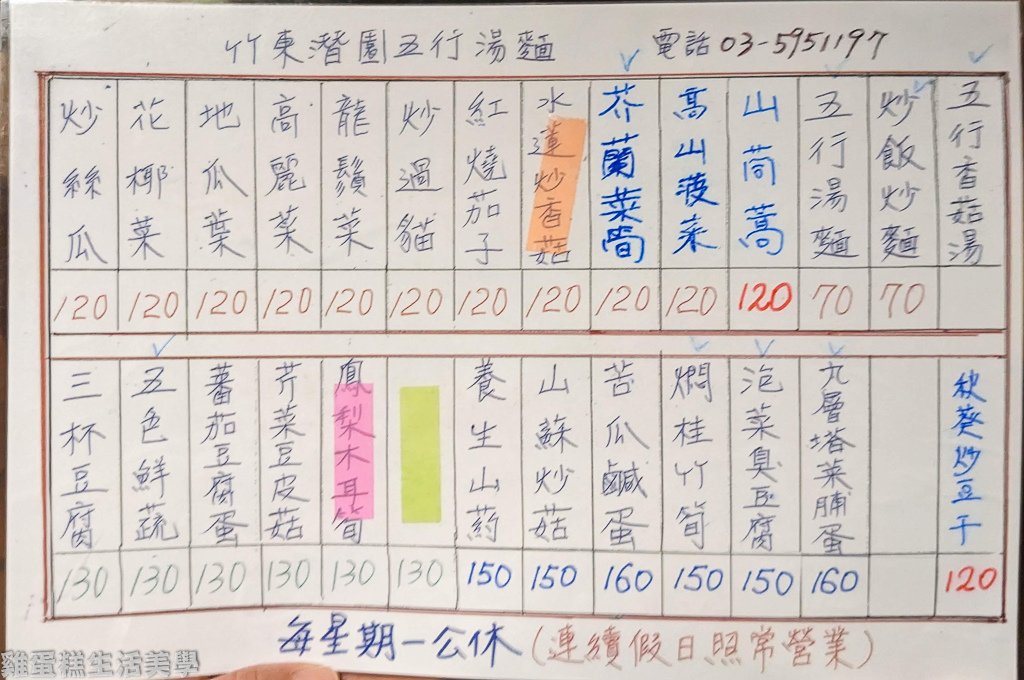 竹東潛園五行湯麵 電話 03-5951197
五行香菇湯
炒飯炒麵 70
五行湯麵 70
山茼蒿 120
高山菠菜 120
芥蘭菜 120
水蓮炒香菇 120
紅燒茄子 120
炒過貓 120
龍鬚菜 120
高麗菜 120
地瓜葉 120
花椰菜 120
炒絲瓜 120
秋葵炒豆干 120
九層塔菜脯蛋 160
泡菜臭豆腐 150
燜桂竹筍 150
苦瓜鹹蛋 160
山蘇炒菇 150
養生山葯 150
130
鳳梨木耳筍 130
芹菜豆皮菇 130
蕃茄豆腐蛋 130
五色鮮蔬 130
三杯豆腐 130
每星期一公休(連續假日照常營業)
雞蛋糕生活美學